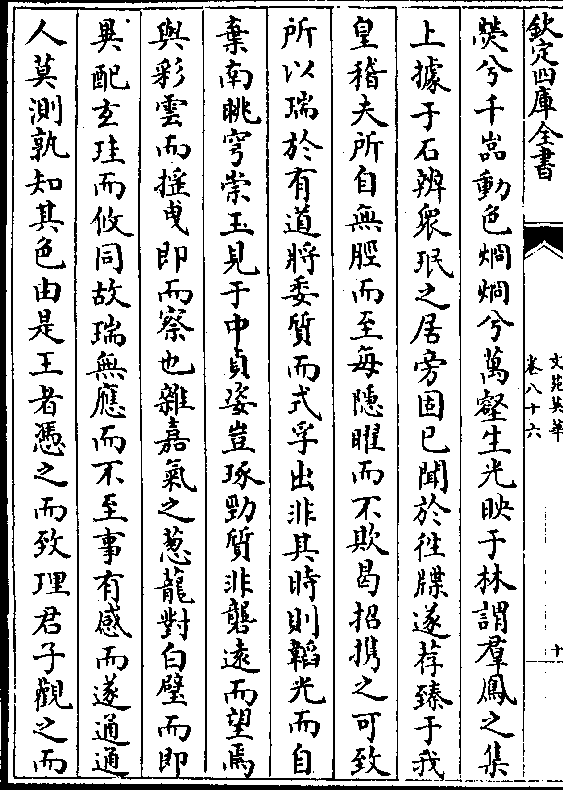 欽定四庫全書
文苑英華
卷八十六
十
熒兮千巖動色烱烱兮萬壑生光映于林謂羣鳳之集
上據于石辨衆珉之居旁固已聞於徃牒遂荐臻于我
皇稽夫所自無脛而至每隱暇而不欺曷招携之可致
所以瑞於有道將委質而式孚出非其時則韜光而自
棄南眺穹崇玉見于中貞姿豈琢勁質非礱遠而望焉
與彩雲而揺曳即而察也雜嘉氣之葱蘢對白璧而即
異配玄珪而攸同故瑞無應而不至事有感而遂通通
人莫測孰知其色由是王者憑之而致理君子觀之而